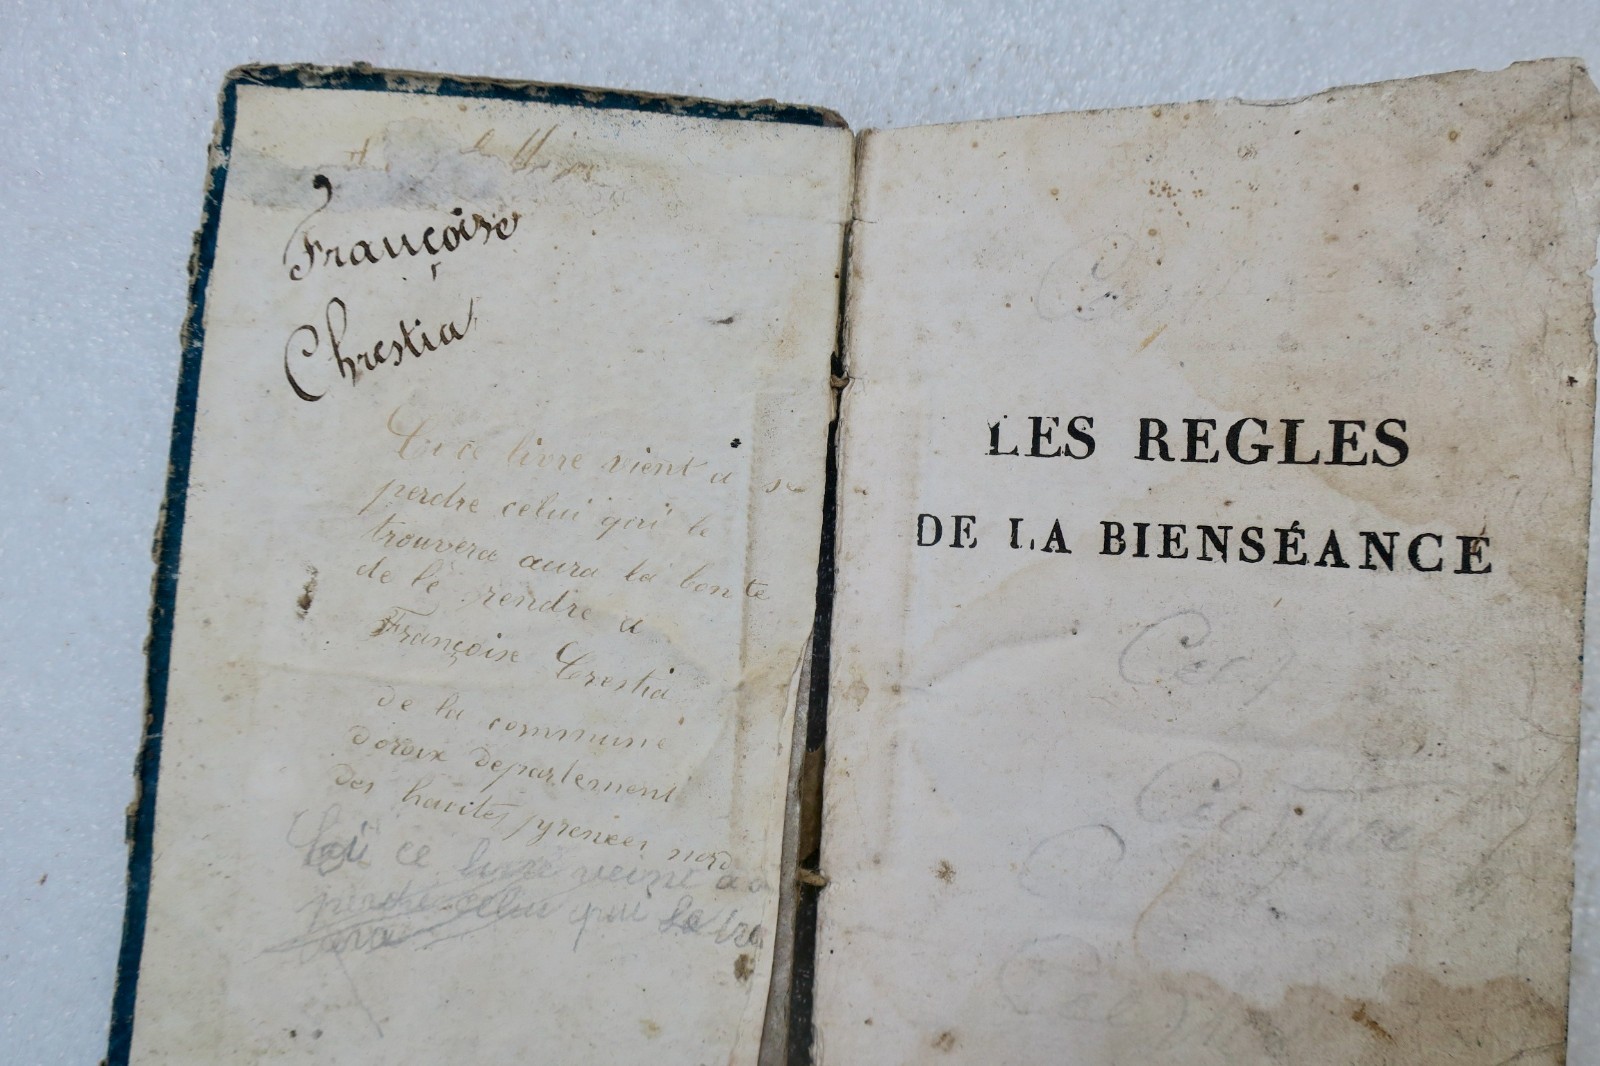 Françoise
Chrestia
Si ce livre vient a se
perdre celui qui le
trouvera aura la bonte
de le rendre a
Françoise Crestia
de la commune
doroix departement
des hautes pyrenees nord
Si ce livre veint a
perdre celui qui le
LES REGLES
DE LA BIENSÉANCE